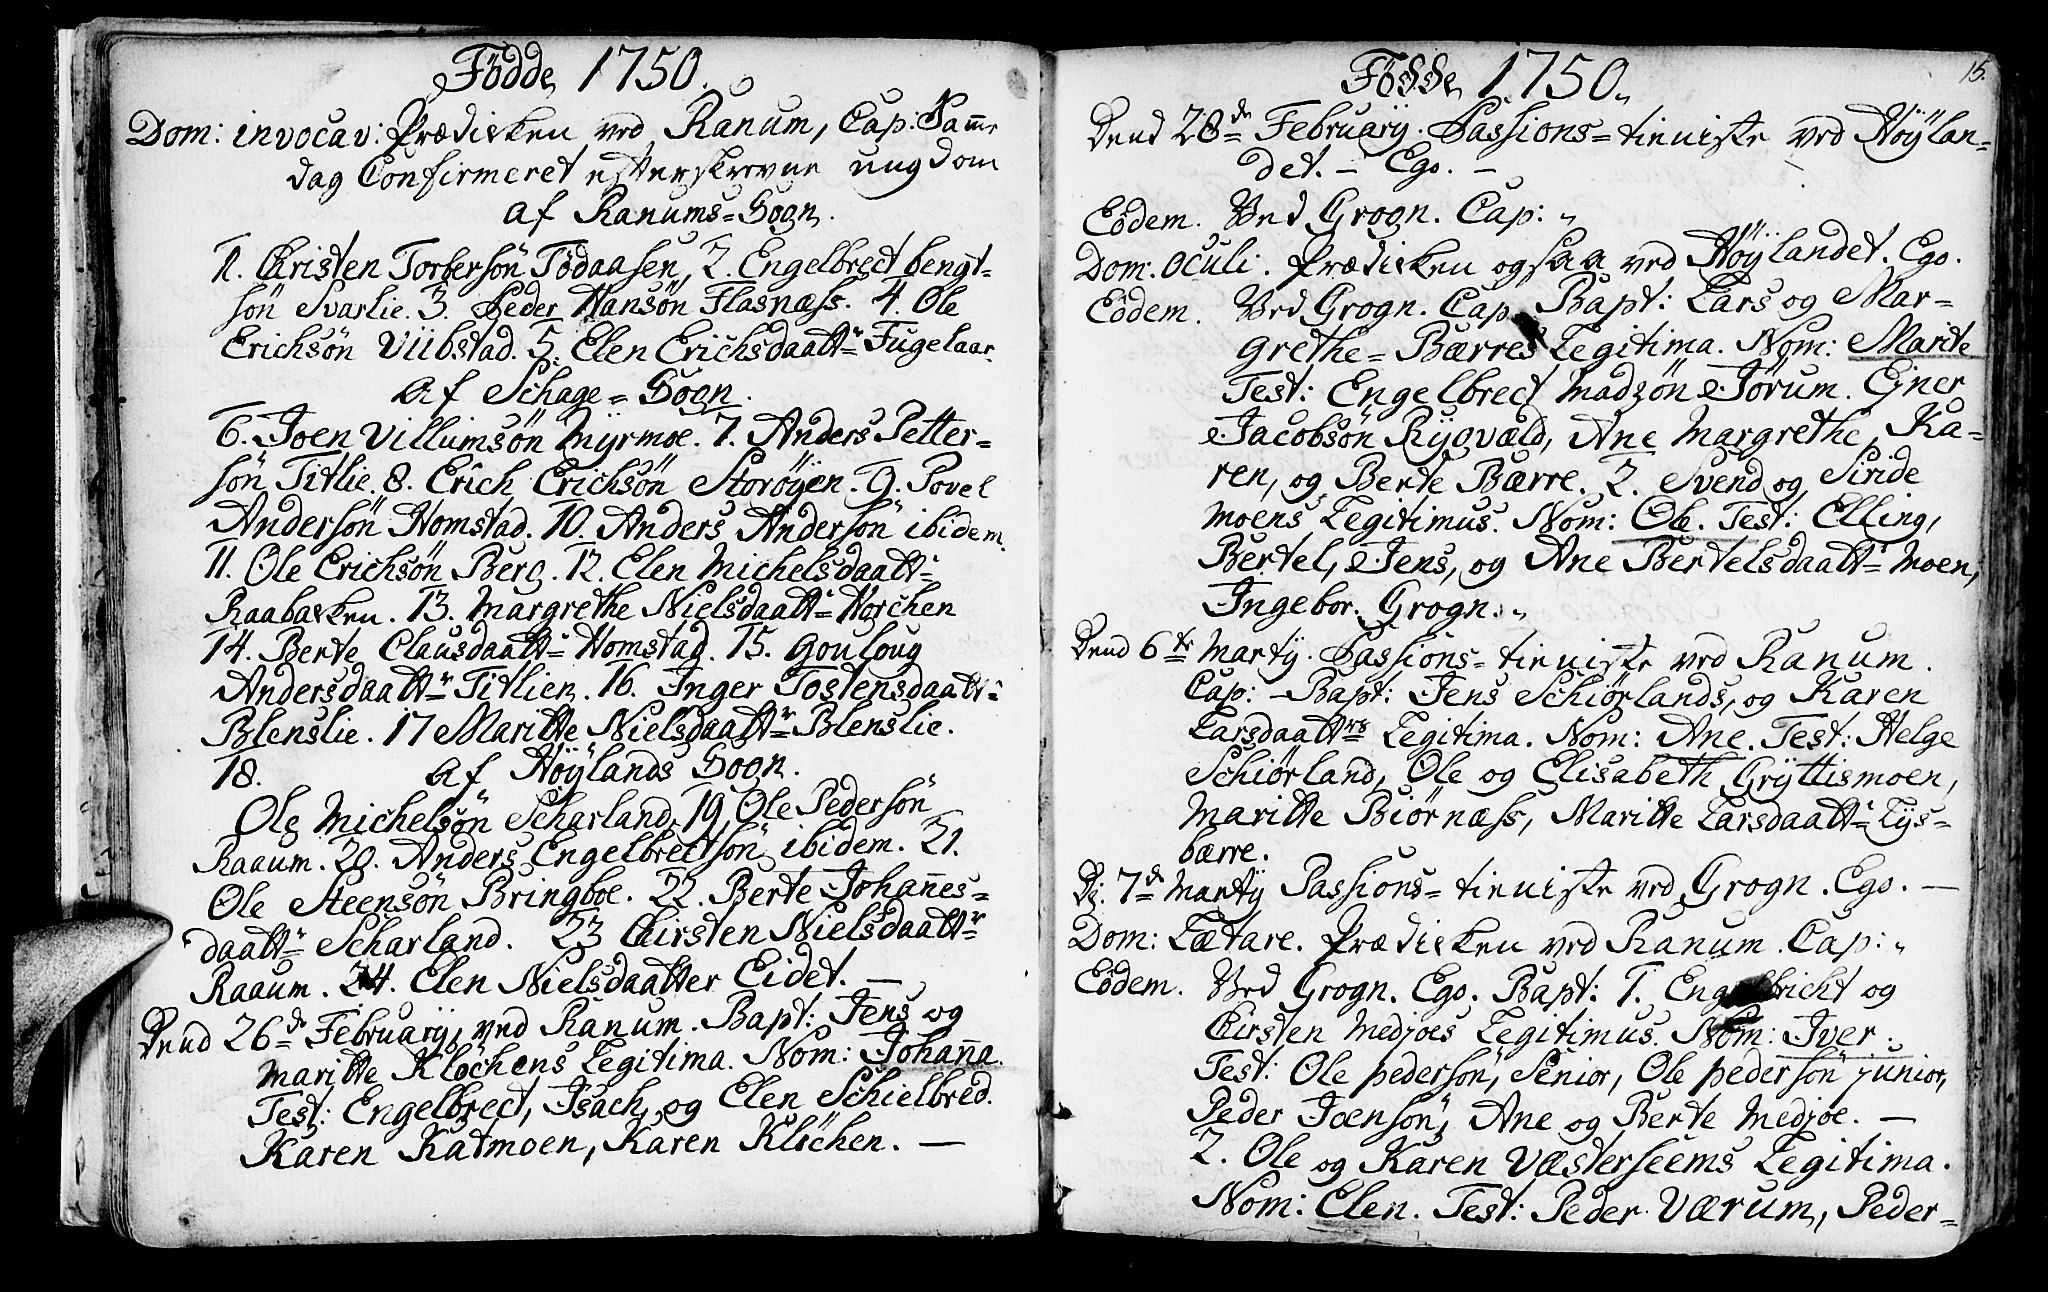 Fødde 1750.
Dom: invocav: Prædicken ved Ranum, Cap: Samme
dag Confirmeret efterskrevne ungdom
af Ranums=Sogn.
1. Christen Torbersön Tödaasen, 2. Engelbrect bengt=
sön Svarlie. 3. Peder Hansön Flasnæss. 4. Ole
Erichsön Viibstad. 5. Elen Erichsdaattr Fugelaar.
af Schage=Sogn.
6. Joen Villumsön Myrmoe. 7. Anders Petter=
sön Titlie. 8. Erich Erichsön Storöyen. 9. Povel
Andersön Homstad. 10. Anders Andersön ibidem.
11. Ole Erichsön Berg. 12. Elen Michelsdaattr
Raabacken. 13. Margrethe Nielsdaattr Horchen
14. Berte Clausdaattr Homstad. 15. Gouloug
Andersdaattr Titlien. 16. Inger Tostensdaattr
Blenslie. 17 Maritte Nielsdaattr Blenslie.
18. af Höylands Sogn.
Ole Michelsön Scharland, 19. Ole Pedersön
Raaum. 20. Anders Engelbrectsön ibidem. 21.
Ole Steensön Bringboe. 22. Berte Johannes=
daattr Scharland. 23 Chirsten Nielsdaattr
Raaum. 24. Elen Nielsdaatter Eidet. —
Dend 26de Februarij, ved Ranum. Bapt: Jens og
Maritte Klöchens Legitima. Nom: Johanna.
Test: Engelbrect, Isach, og Elen Schielbred.
Karen Katmoen, Karen Klöchen. —
15.
Fødde 1750.
Dend 28de Februarij. Passions=tieniste ved Höylan=
det. — Ego. —
Eodem. Ved Grogn. Cap:
Dom: Oculi. Prædicken ogsaa ved Höylandet. Ego.
Eodem. Ved Grogn. Cap. Bapt: Lars og Mar=
grethe=Bærres Legitima. Nom: Marite
Test: Engelbrect Madzön Jörum. Ejner
Jacobsön Rygvald, Ane Margrethe, Ka=
ren, og Berte Bærre. 2. Svend og Siride
Moens Legitimus. Nom: Ole. Test: Elling,
Bertel, Jens, og Ane Bertelsdaattr Moen,
Ingebor. Grogn.
Dend 6te Martij. Passions=tieniste ved Ranum.
Cap: — Bapt: Jens Schiörlands, og Karen
Larsdaattrs Legitima. Nom: Ane. Test: Helge
Schiörland, Ole og Elisabeth Gryttismoen,
Maritte Biörnæss, Maritte Larsdaattr Lys=
bærre.
Dj. 7de Martij Passions=tieniste ved Grogn. Ego. —
Dom: Lætare. Prædicken ved Ranum. Cap:
Eodem. Ved Grogn. Ego. Bapt: 1. Engelbricht og
Chirsten Medjoes Legitimus. Nom: Iver.
Test: Ole pedersön, Senior, Ole pedersön junior,
Peder Joensön, Ane og Berte Medjoe. —
2. Ole og Karen Væsterseems Legitima.
Nom: Elen. Test: Peder Værum, Peder=